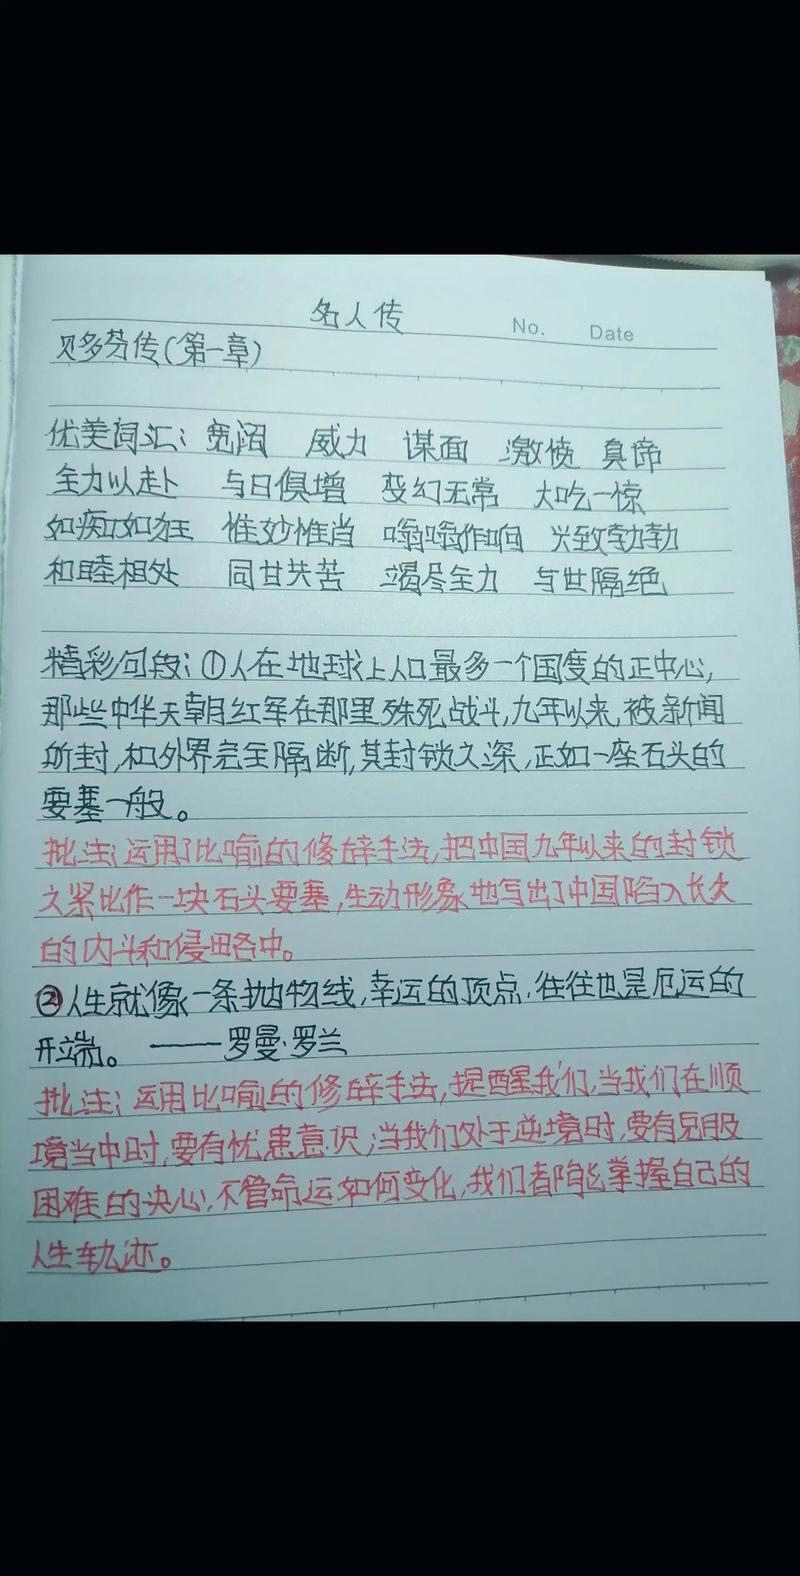 名人传
No. Date
贝多芬传(第一章)
优美词汇: 宽阔 威力 谋面 激愤 真谛
全力以赴 与日俱增 变幻无常 大吃一惊
如痴如狂 惟妙惟肖 嗡嗡作响 兴致勃勃
和睦相处 同甘共苦 竭尽全力 与世隔绝
精彩句段:①人在地球上人口最多一个国度的正中心,
那些中华天朝红军在那里殊死战斗,九年以来,被新闻
所封,和外界完全隔断,其封锁之深,正如一座石头的
要塞一般。
批注:运用了比喻的修辞手法,把中国九年以来的封锁
之紧比作一块石头要塞,生动形象地写出了中国陷入长久
的内斗和侵略中。
②人生就像一条抛物线,幸运的顶点,往往也是厄运的
开端。 ——罗曼·罗兰
批注:运用比喻的修辞手法,提醒我们,当我们在顺
境当中时,要有忧患意识;当我们处于逆境时,要有克服
困难的决心,不管命运如何变化,我们都能掌握自己的
人生轨迹。